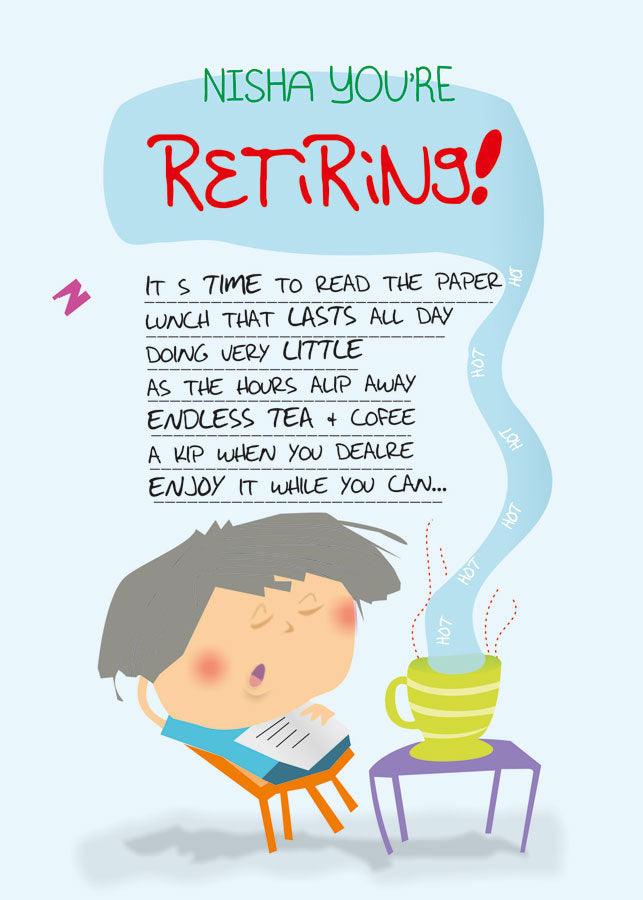 NISHA YOU'RE
RETIRING!
IT S TIME TO READ THE PAPER
LUNCH THAT LASTS ALL DAY
DOING VERY LITTLE
AS THE HOURS ALIP AWAY
ENDLESS TEA + COFEE
A KIP WHEN YOU DEALRE
ENJOY IT WHILE YOU CAN...
Z
HOT
HOT
HOT
HOT
HOT
HOT